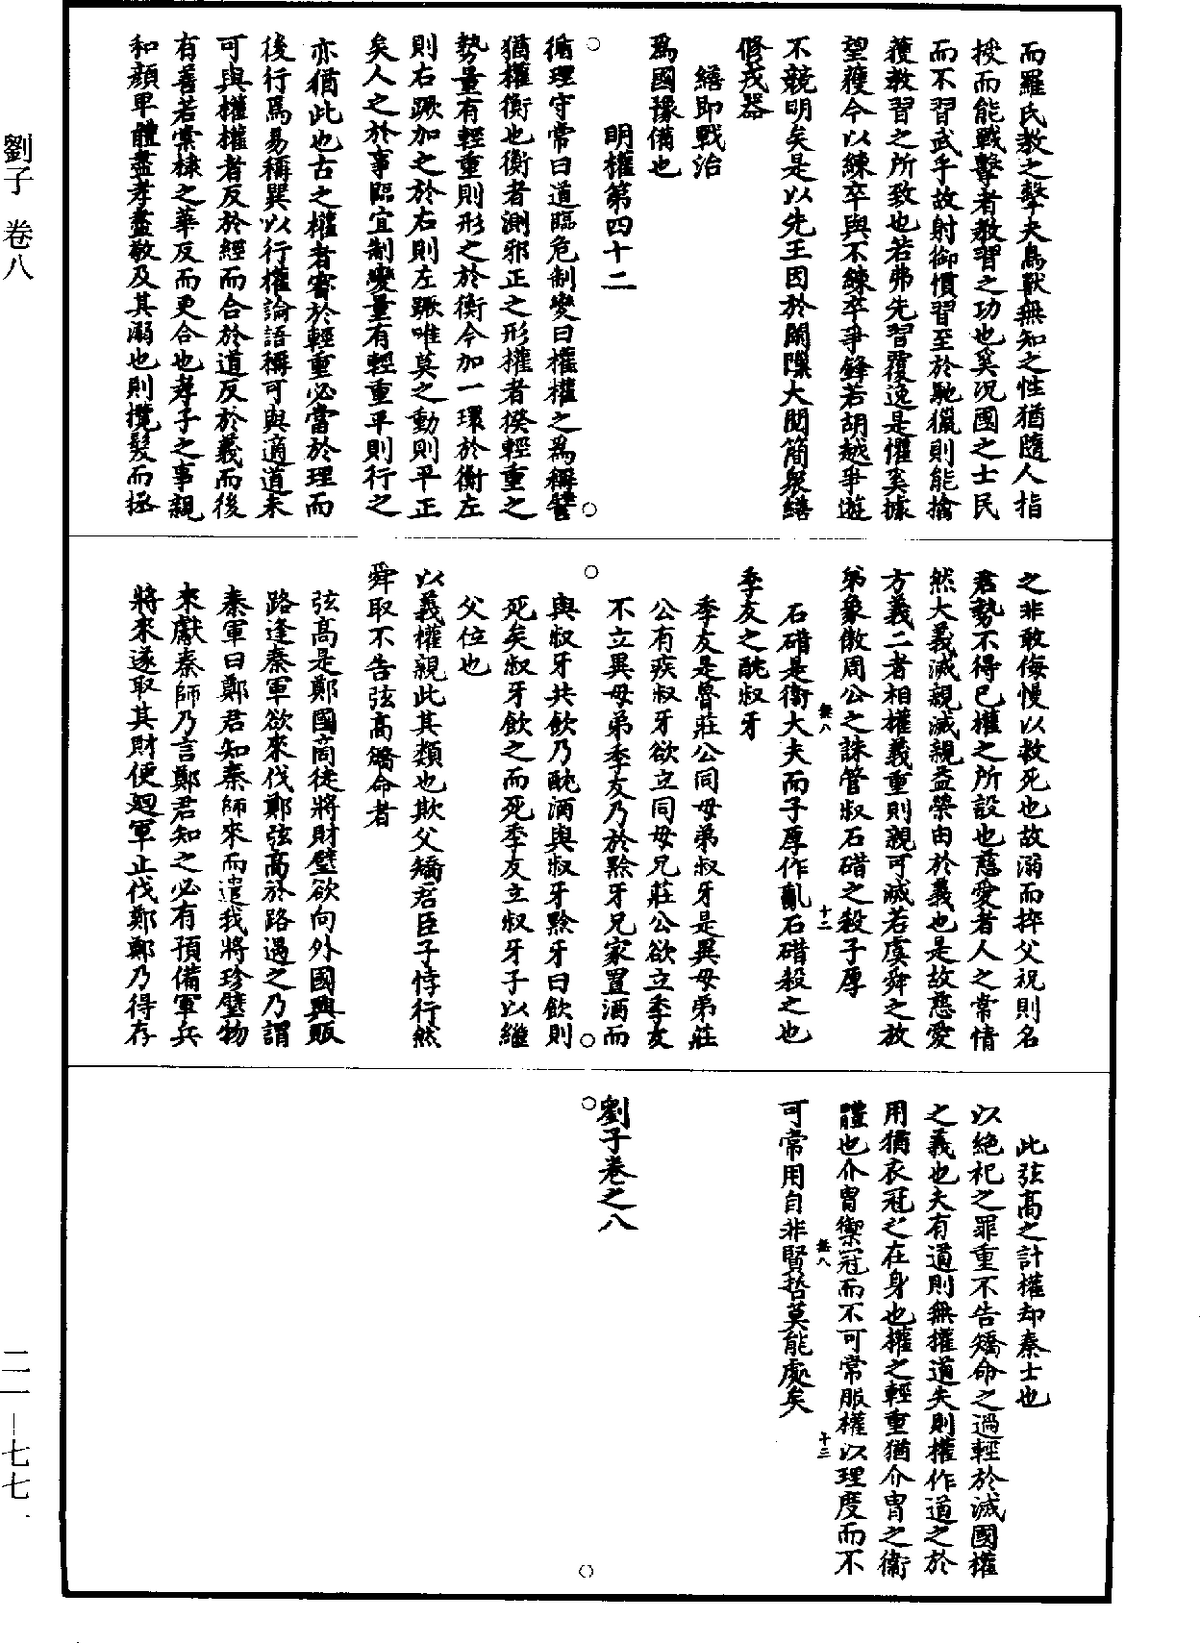 而羅氏教之擊夫鳥獸無知之性猶隨人指
授而能戰擊者教習之功也奚況國之士民
而不習武乎故射御慣習至於馳獵則能擒
獲教習之所致也若弗先習覆逸是懼奚據
望獲今以練卒與不練卒爭鋒若胡越爭遊
不競明矣是以先王因於閑隙大閱簡眾繕
修戎器
繕即戰治
爲國豫備也
明權第四十二
循理守常曰道臨危制變曰權權之爲稱譬
猶權衡也衡者測邪正之形權者揆輕重之
勢量有輕重則形之於衡今加一環於衡左
則右蹶加之於右則左蹶唯莫之動則平正
矣人之於事臨宜制變量有輕重平則行之
亦猶此也古之權者審於輕重必當於理而
後行焉易稱巽以行權論語稱可與適道未
可與權權者反於經而合於道反於義而後
有善若棠棣之華反而更合也孝子之事親
和顏卑體盡孝盡敬及其溺也則攬髮而拯
之非敢侮慢以救死也故溺而捽父祝則名
君勢不得已權之所設也慈愛者人之常情
然大義滅親滅親益榮由於義也是故慈愛
方義二者相權義重則親可滅若虞舜之放
弟象傲周公之誅管叔石碏之殺子厚
無八 十二
石碏是衛大夫而子厚作亂石碏殺之也
季友之酖叔牙
季友是魯莊公同母弟叔牙是異母弟莊
公有疾叔牙欲立同母兄莊公欲立季友
不立異母弟季友乃於黔牙兄家置酒而
與叔牙共飲乃酖酒與叔牙黔牙曰飲則
死矣叔牙飲之而死季友立叔牙子以繼
父位也
以義權親此其類也欺父矯君臣子悖行然
舜取不告弦高矯命者
弦高是鄭國商徒將財璧欲向外國興販
路逢秦軍欲來伐鄭弦高於路遇之乃謂
秦軍曰鄭君知秦師來而遣我將珍璧物
來獻秦師乃言鄭君知之必有預備軍兵
將來遂取其財便迴軍止伐鄭鄭乃得存
此弦高之計權却秦士也
以絕祀之罪重不告矯命之過輕於滅國權
之義也夫有道則無權道失則權作道之於
用猶衣冠之在身也權之輕重猶介冑之衛
體也介冑禦冦而不可常服權以理度而不
無八 十三
可常用自非賢哲莫能處矣
劉子卷之八
劉子 卷八
二一—七七